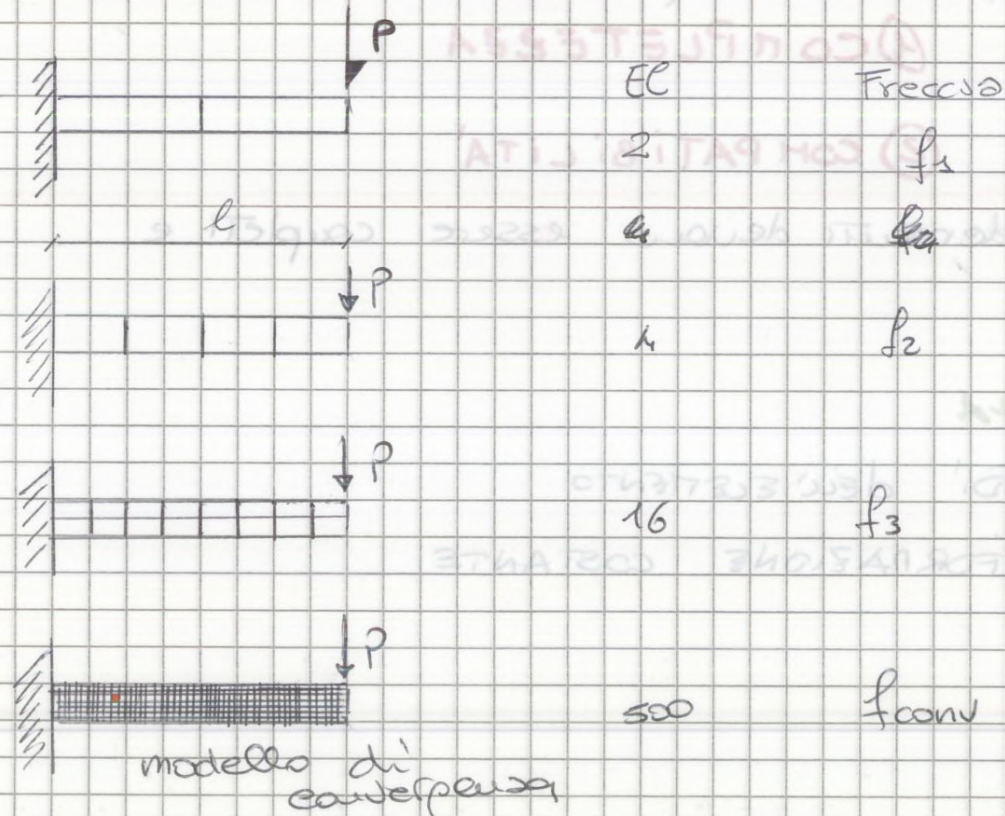 P
EL Freccia
2 f1
l
P
4 f2
P
16 f3
P
500 fconv
modello di
convergenza